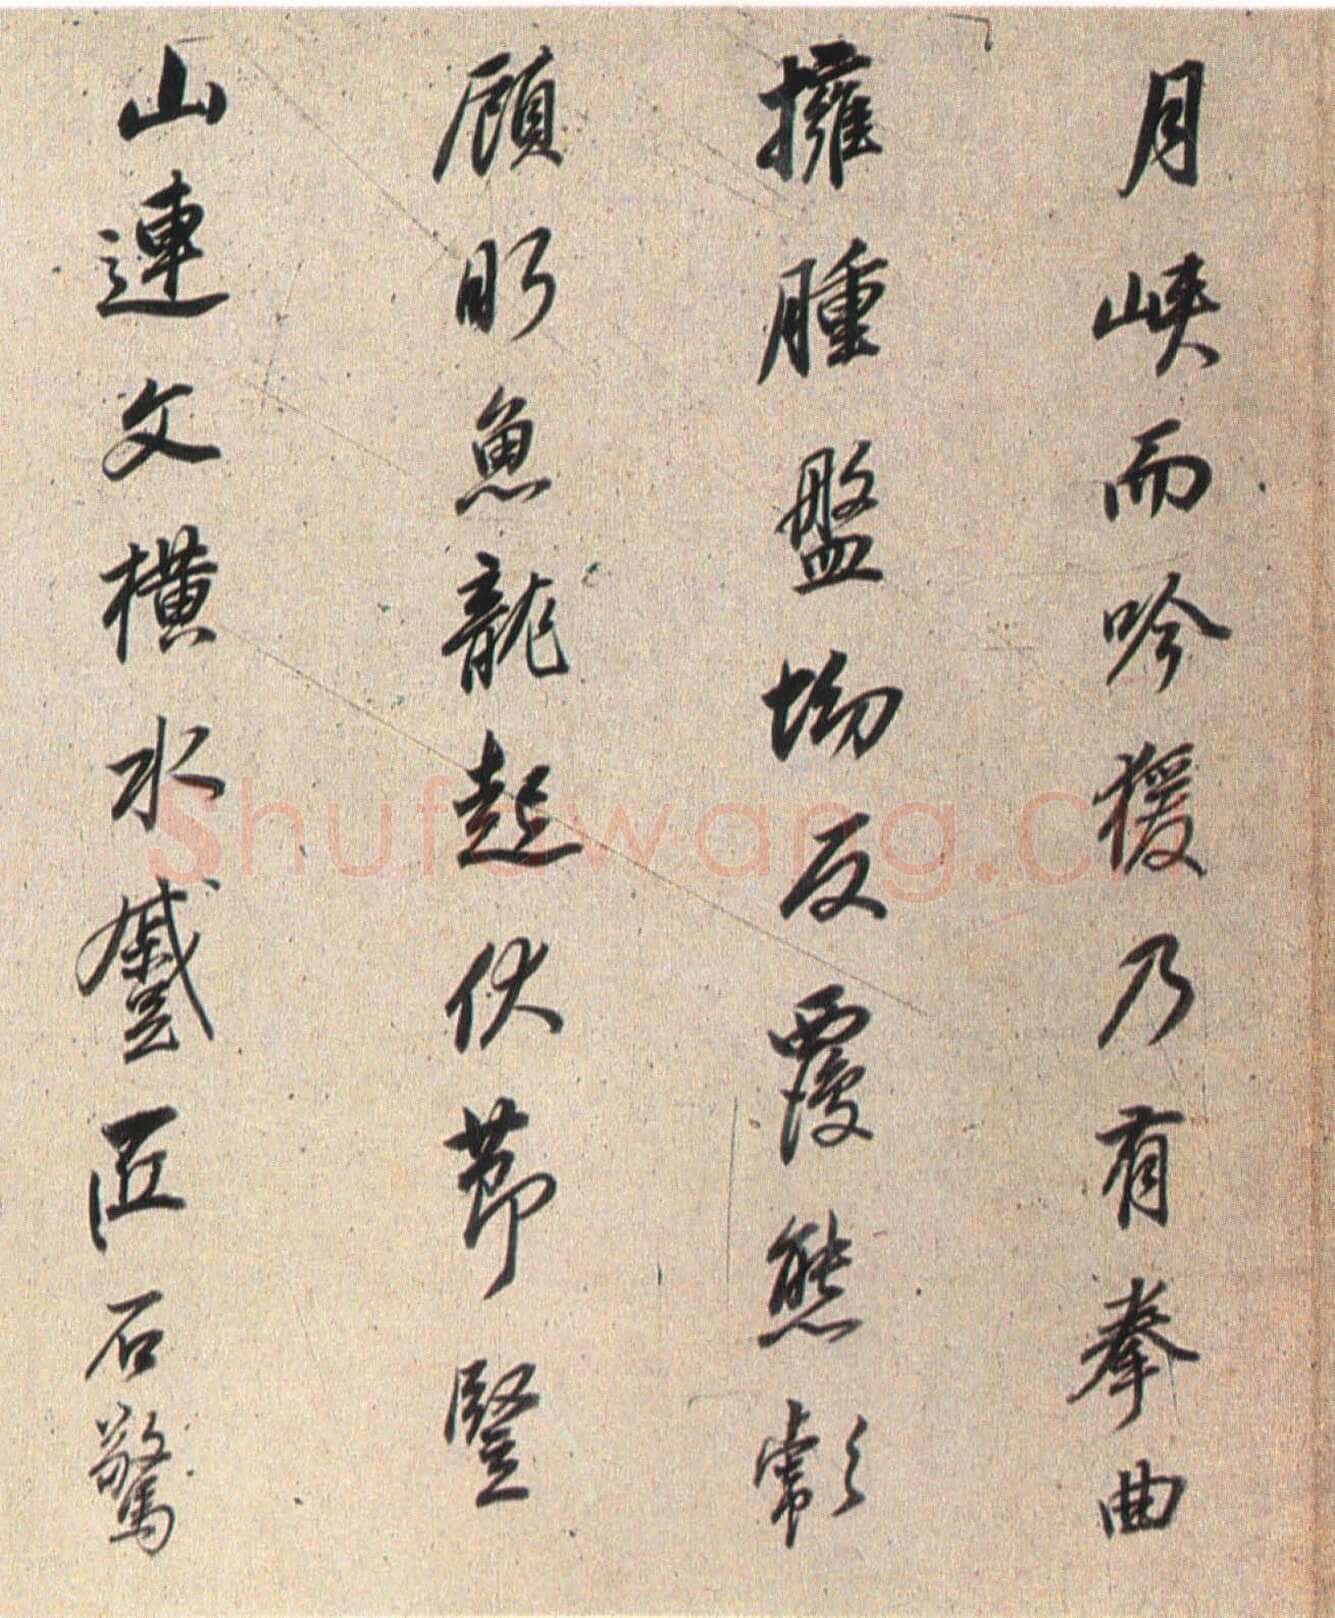 月峽而吟猨乃有拳曲
擁腫盤坳反覆熊彪
顧盼魚龍起伏節豎
山連文橫水蹙匠石驚
Shufawang.cn